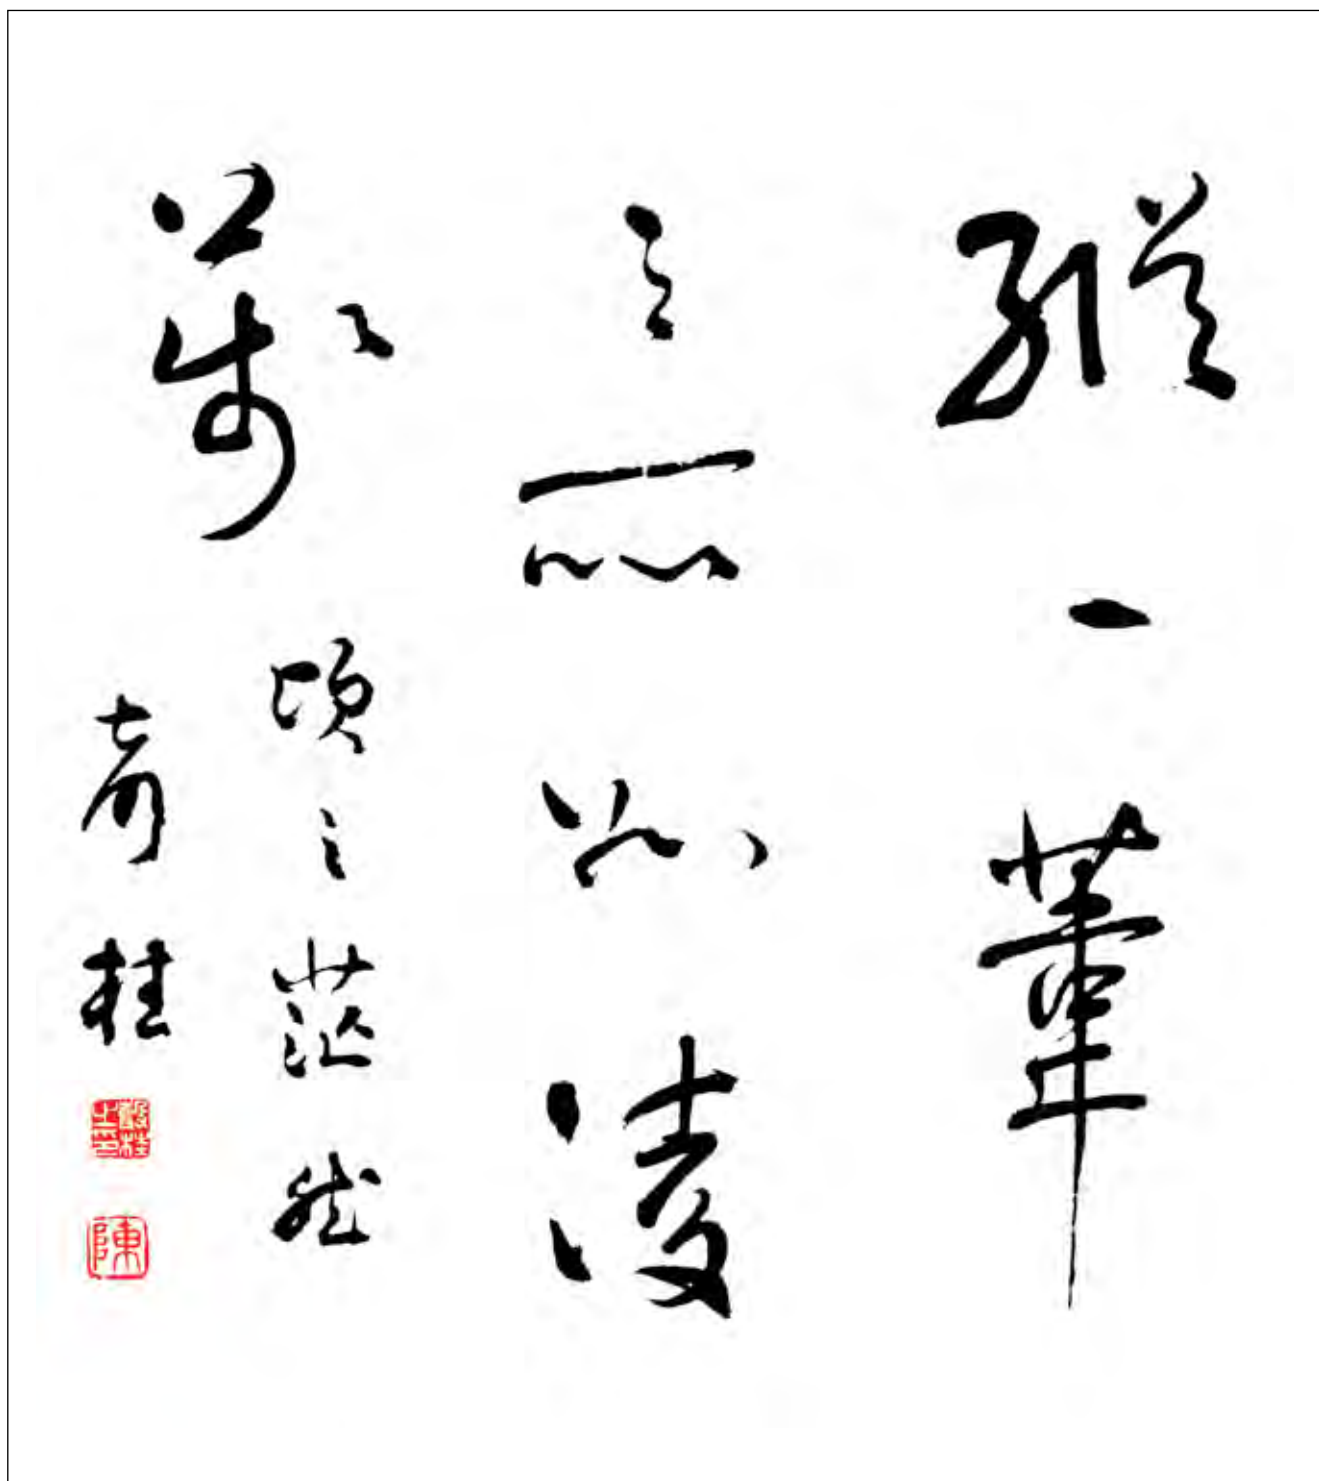 縱一葦
之所如凌
萬
頃之茫然
奇桂
陳